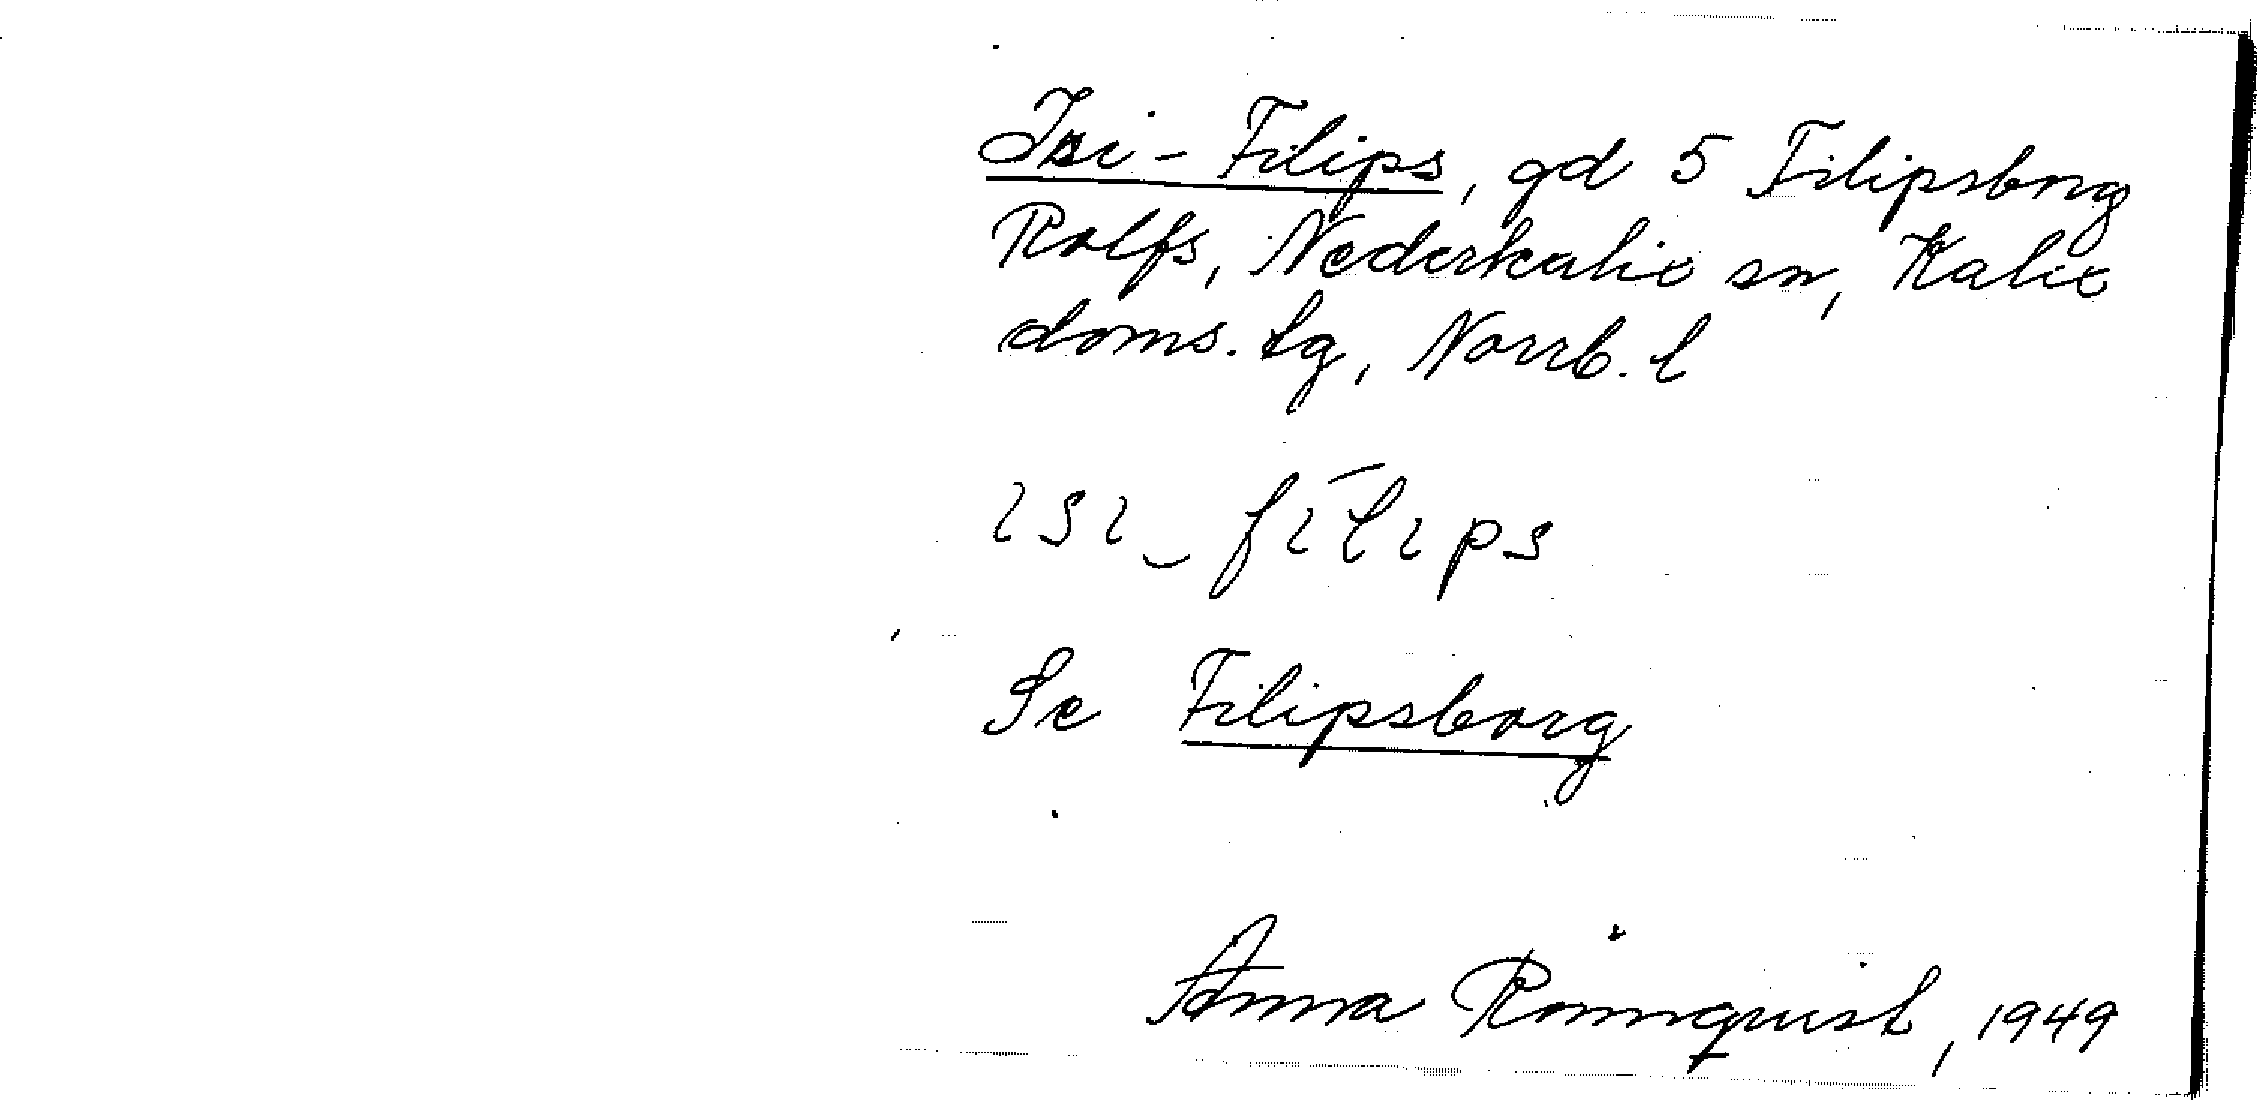 Isi-Filips, gd 5 Filipsborg
Rolfs, Nederkalix sn, Kalix
doms. lg, Norrb. l
ısı‿fı̄lıps
Se Filipsborg
Anna Rönnquist, 1949